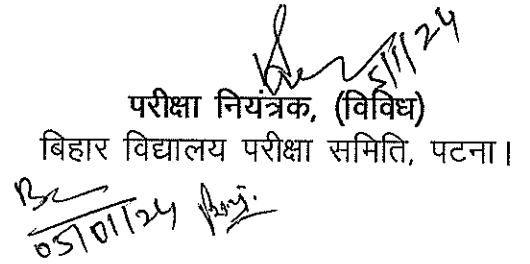 5/1/24
परीक्षा नियंत्रक, (विविध)
बिहार विद्यालय परीक्षा समिति, पटना।
05/01/24